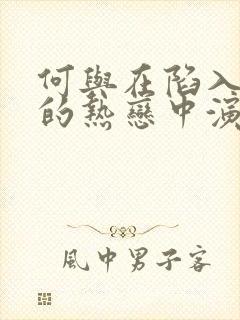 何與在陷入
的熱戀中演
風中男子客